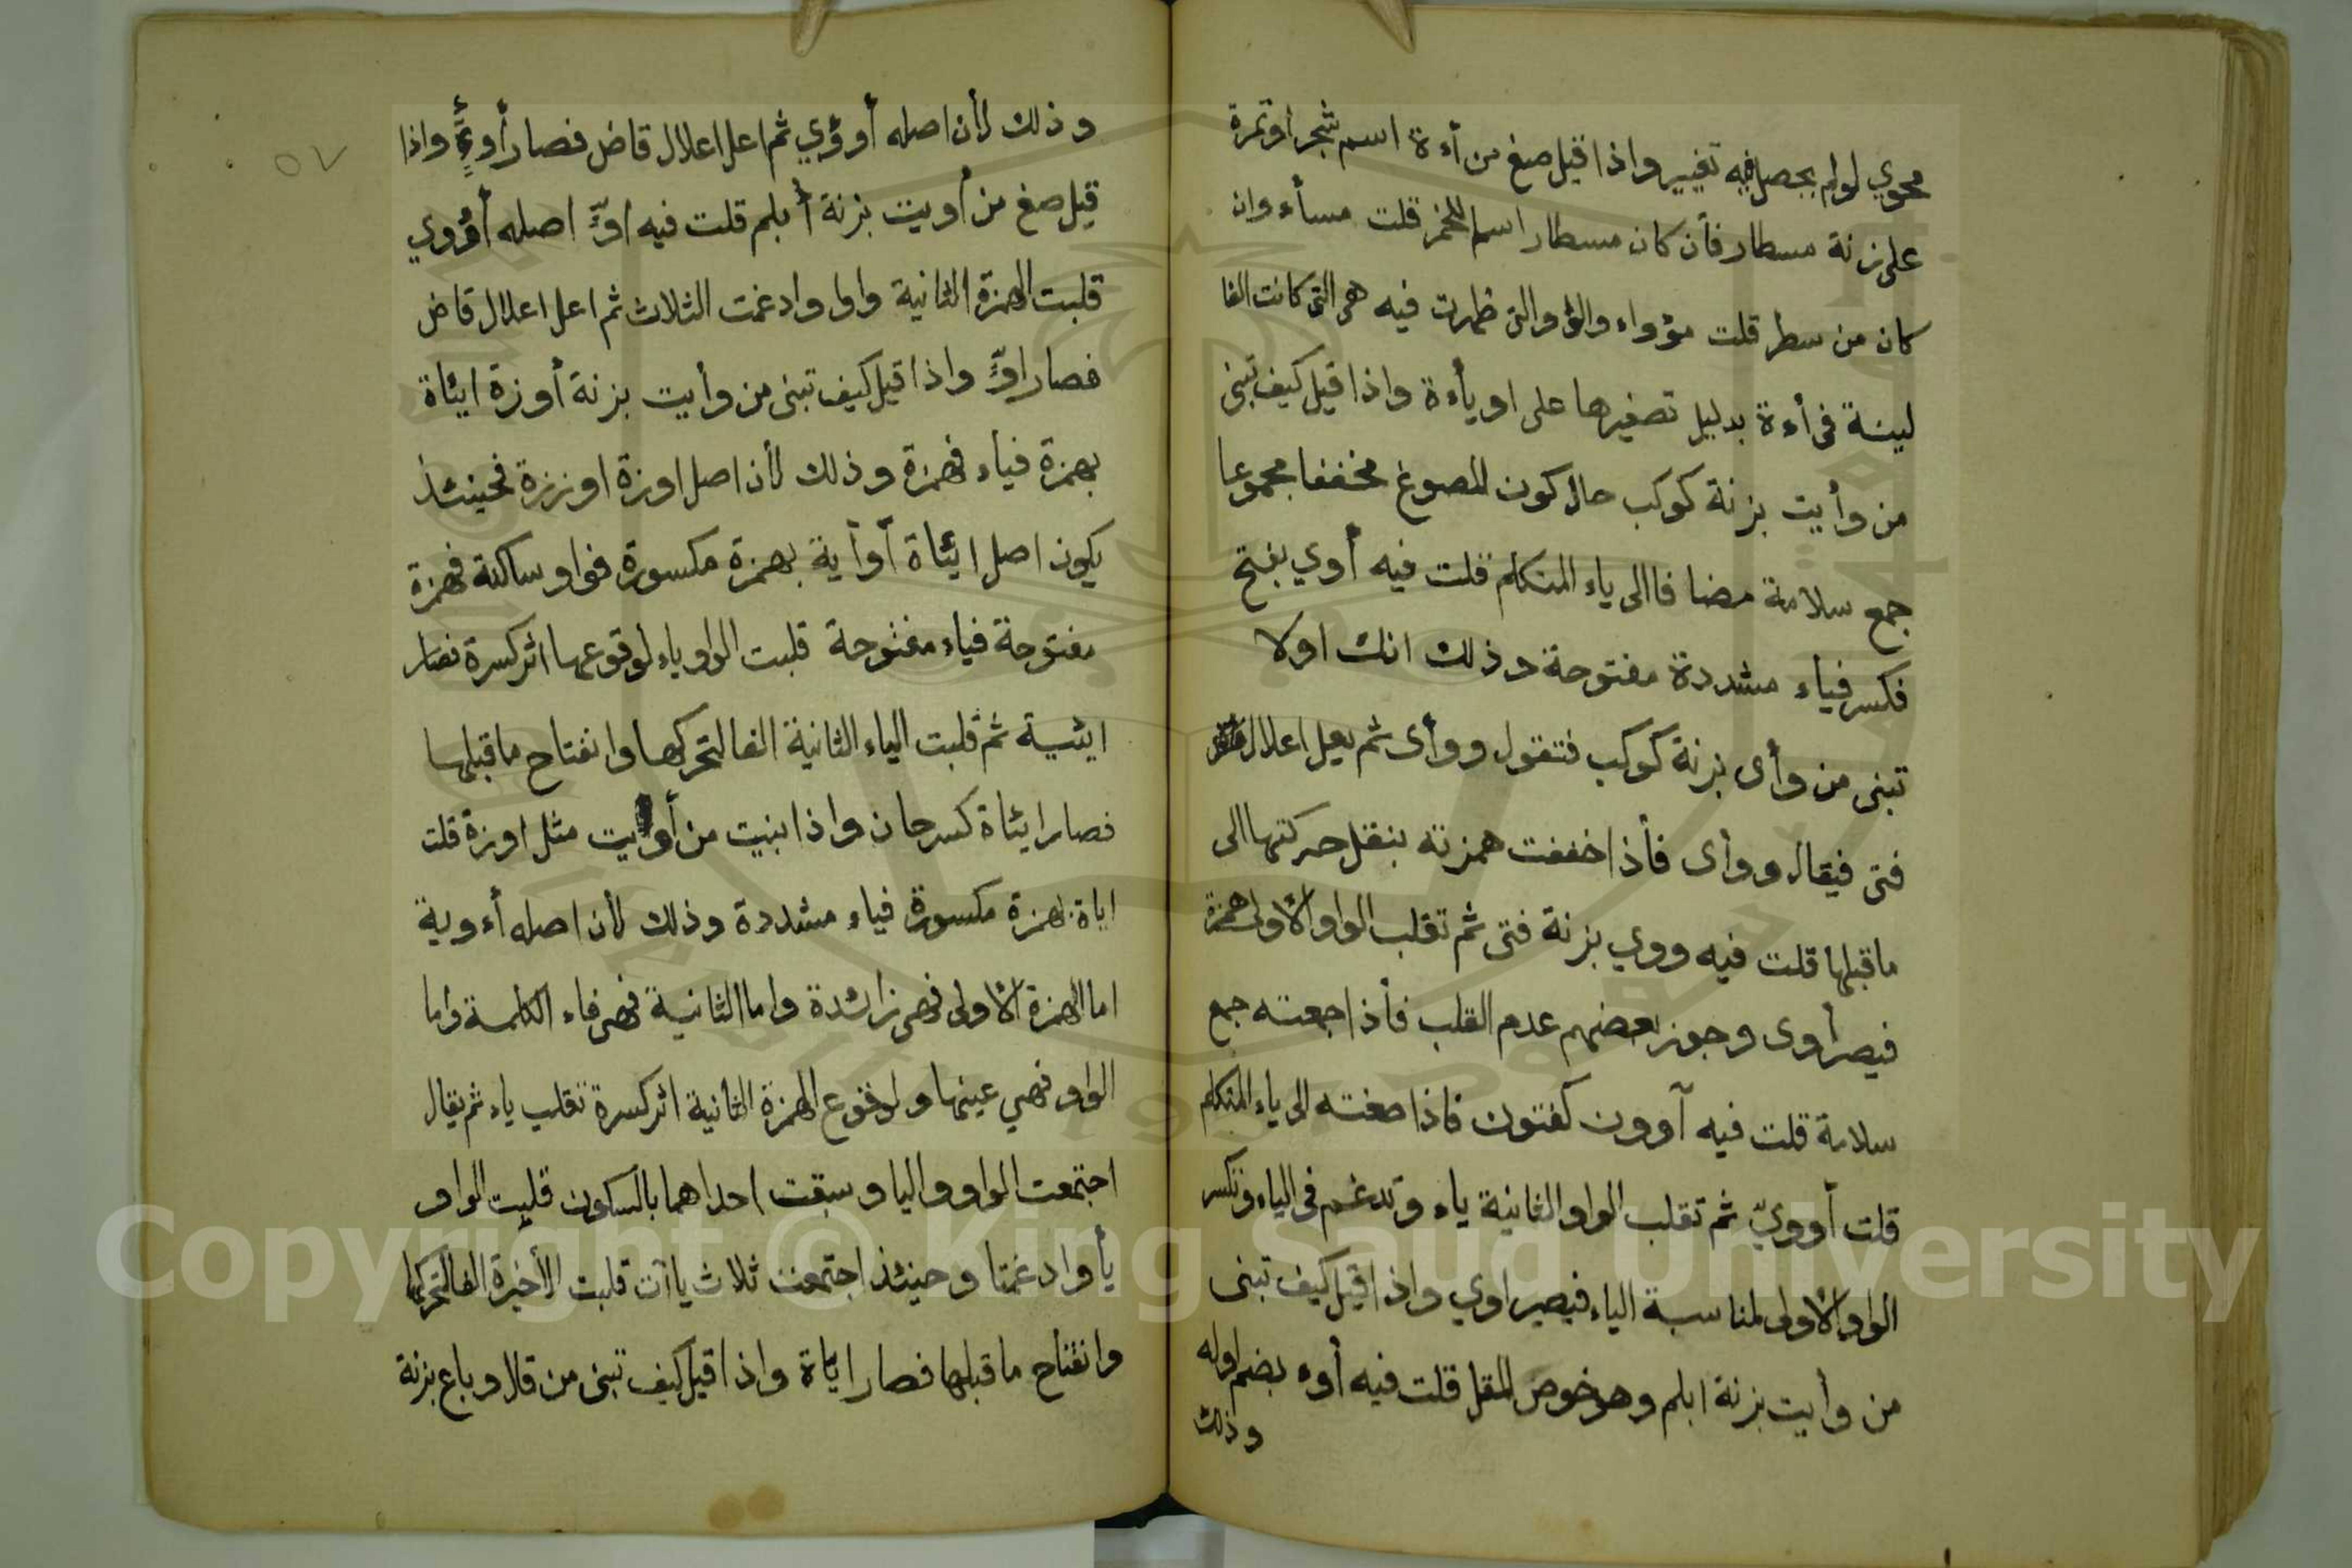 محوي لو لم يحصل فيه تغيير واذا قيل صغ من أءة اسم شجر او ثمرة
على زنة مسطار فأن كان مسطار اسم للخمر قلت مسأء وان
كان من سطر قلت مؤواء والؤو التى ظهرت فيه هى التى كانت الفا
لينة فى أءة بدليل تصغيرها على اويأءة واذا قيل كيف تبنى
من وأيت بزنة كوكب حال كون المصوغ مخففا مجموعا
جمع سلامة مضافا الى ياء المتكلم قلت فيه أوي بفتح
فكسر فياء مشددة مفتوحة وذلك انك اولا
تبنى من وأى بزنة كوكب فتقول ووأى ثم يعل اعلال
فتى فيقال ووأى فأذا خففت همزته بنقل حركتها الى
ما قبلها قلت فيه ووي بزنة فتى ثم تقلب الواو الأولى همزة
فيصر أوى وجوز بعضهم عدم القلب فأذا جمعته جمع
سلامة قلت فيه آوون كفتون فاذا صغته الى ياء المتكلم
قلت أوويّ ثم تقلب الواو الثانية ياء وتدغم فى الياء وتكسر
الواو الأولى لمناسبة الياء فيصير اوي واذا قيل كيف تبنى
من وأيت بزنة ابلم وهو خوص المقل قلت فيه أوء بضم اوله
وذلك
٥٧
وذلك لأن اصله أوؤي ثم اعل اعلال قاض فصار أوءٍ واذا
قيل صغ من أويت بزنة أبلم قلت فيه اوٍّ اصله أؤوي
قلبت الهمزة الثانية واوا وادغمت الثلاث ثم اعل اعلال قاض
فصار اوٍّ واذا قيل كيف تبنى من وأيت بزنة أوزة ايئاة
بهمزة فياء فهمزة وذلك لأن اصل اوزة اوززة فحينئذ
يكون اصل ايئاة أوأية بهمزة مكسورة فواو ساكنة فهمزة
مفتوحة فياء مفتوحة قلبت الواو ياء لوقوعها اثر كسرة فصار
ايئية ثم قلبت الياء الثانية الفا لتحركها وانفتاح ما قبلها
فصار ايئاة كسرحان واذا بنيت من أويت مثل اوزة قلت
اياة بهمزة مكسورة فياء مشددة وذلك لأن اصله أءوية
اما الهمزة الأولى فهى زائدة واما الثانية فهى فاء الكلمة واما
الواو فهي عينها ولوقوع الهمزة الثانية اثر كسرة تقلب ياء ثم يقال
اجتمعت الواو واليا وسبقت احداهما بالسكون قلبت الواو
يأ وادغمتا وحينئذ اجتمعت ثلاث ياآت قلبت الأخيرة الفا لتحركها
وانفتاح ما قبلها فصار اياة واذا قيل كيف تبنى من قال وباع بزنة
Copyright © King Saud University